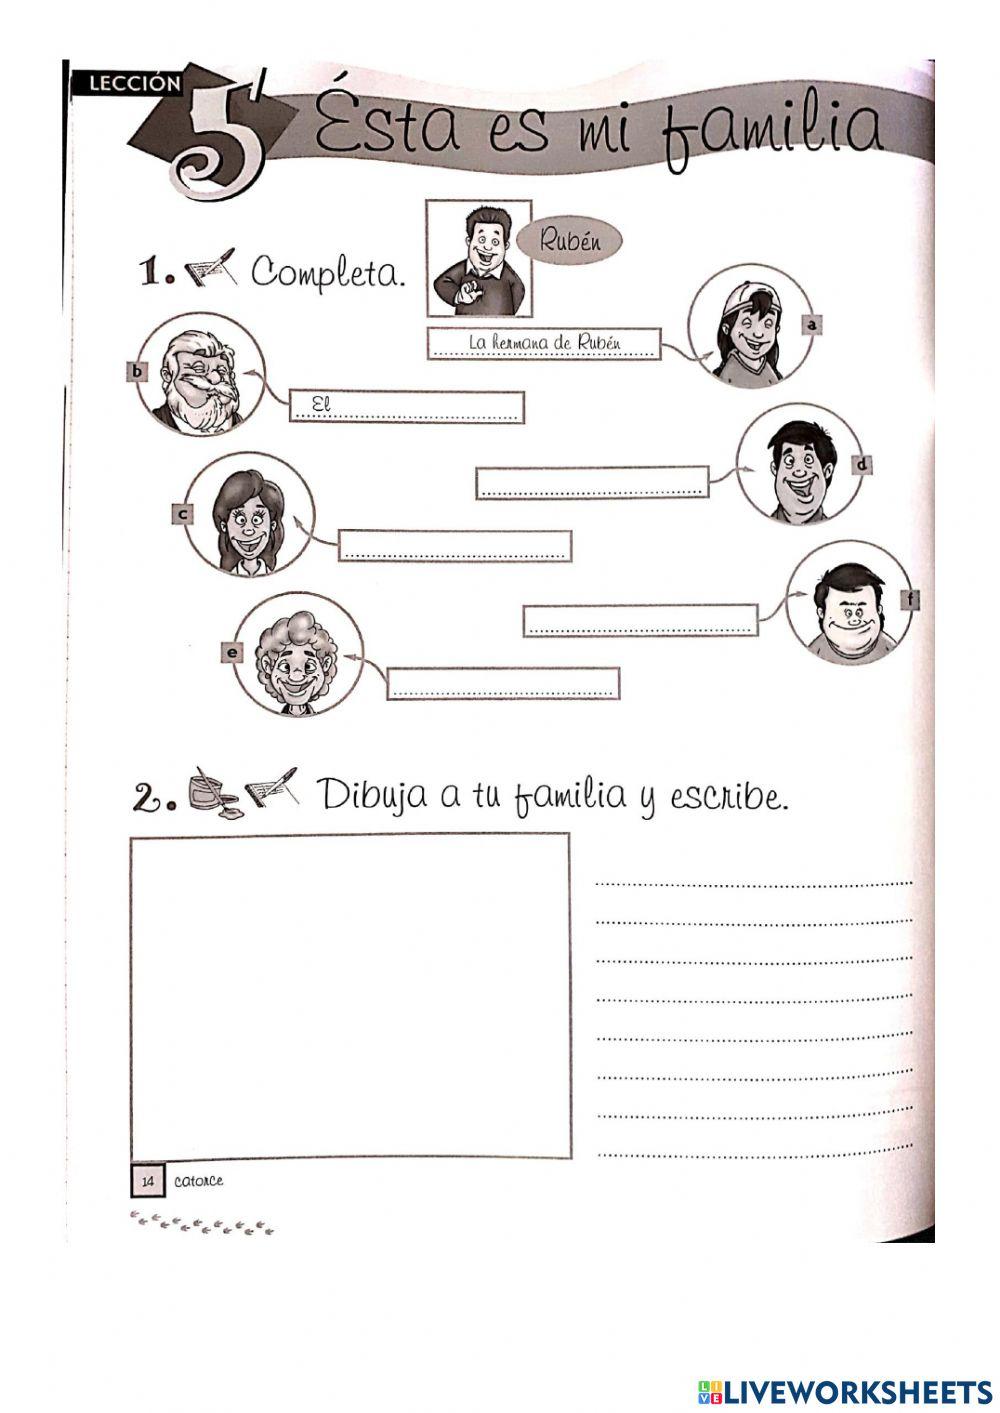 LECCIÓN
5
Ésta es mi familia
1. Completa.
Rubén
a
La hermana de Rubén
b
El
d
c
f
e
2. Dibuja a tu familia y escribe.
14 catorce
LIVE LIVEWORKSHEETS